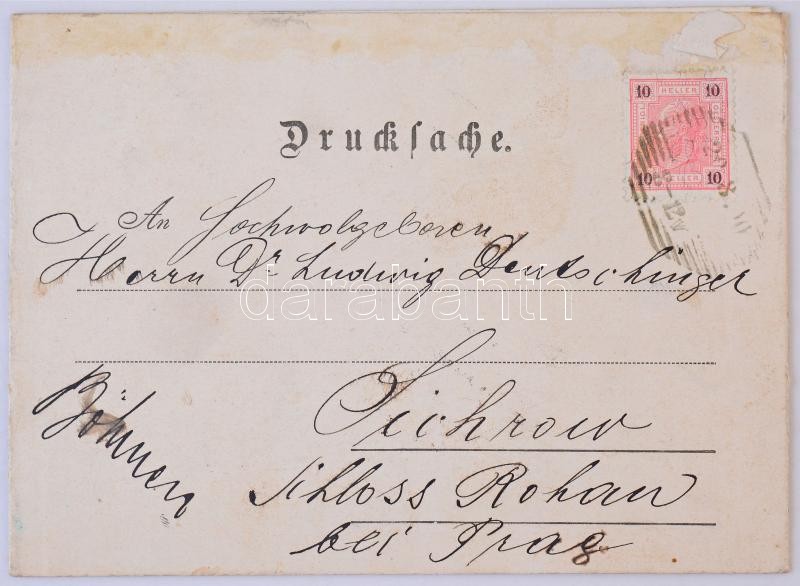 Drucksache.
10 HELLER 10
10 HELLER 10
An Hochwolgeboren
Herrn Dr Ludwig Deutschinger
darabanth
Sichrow
Böhmen
Schloss Rohan
bei Prag